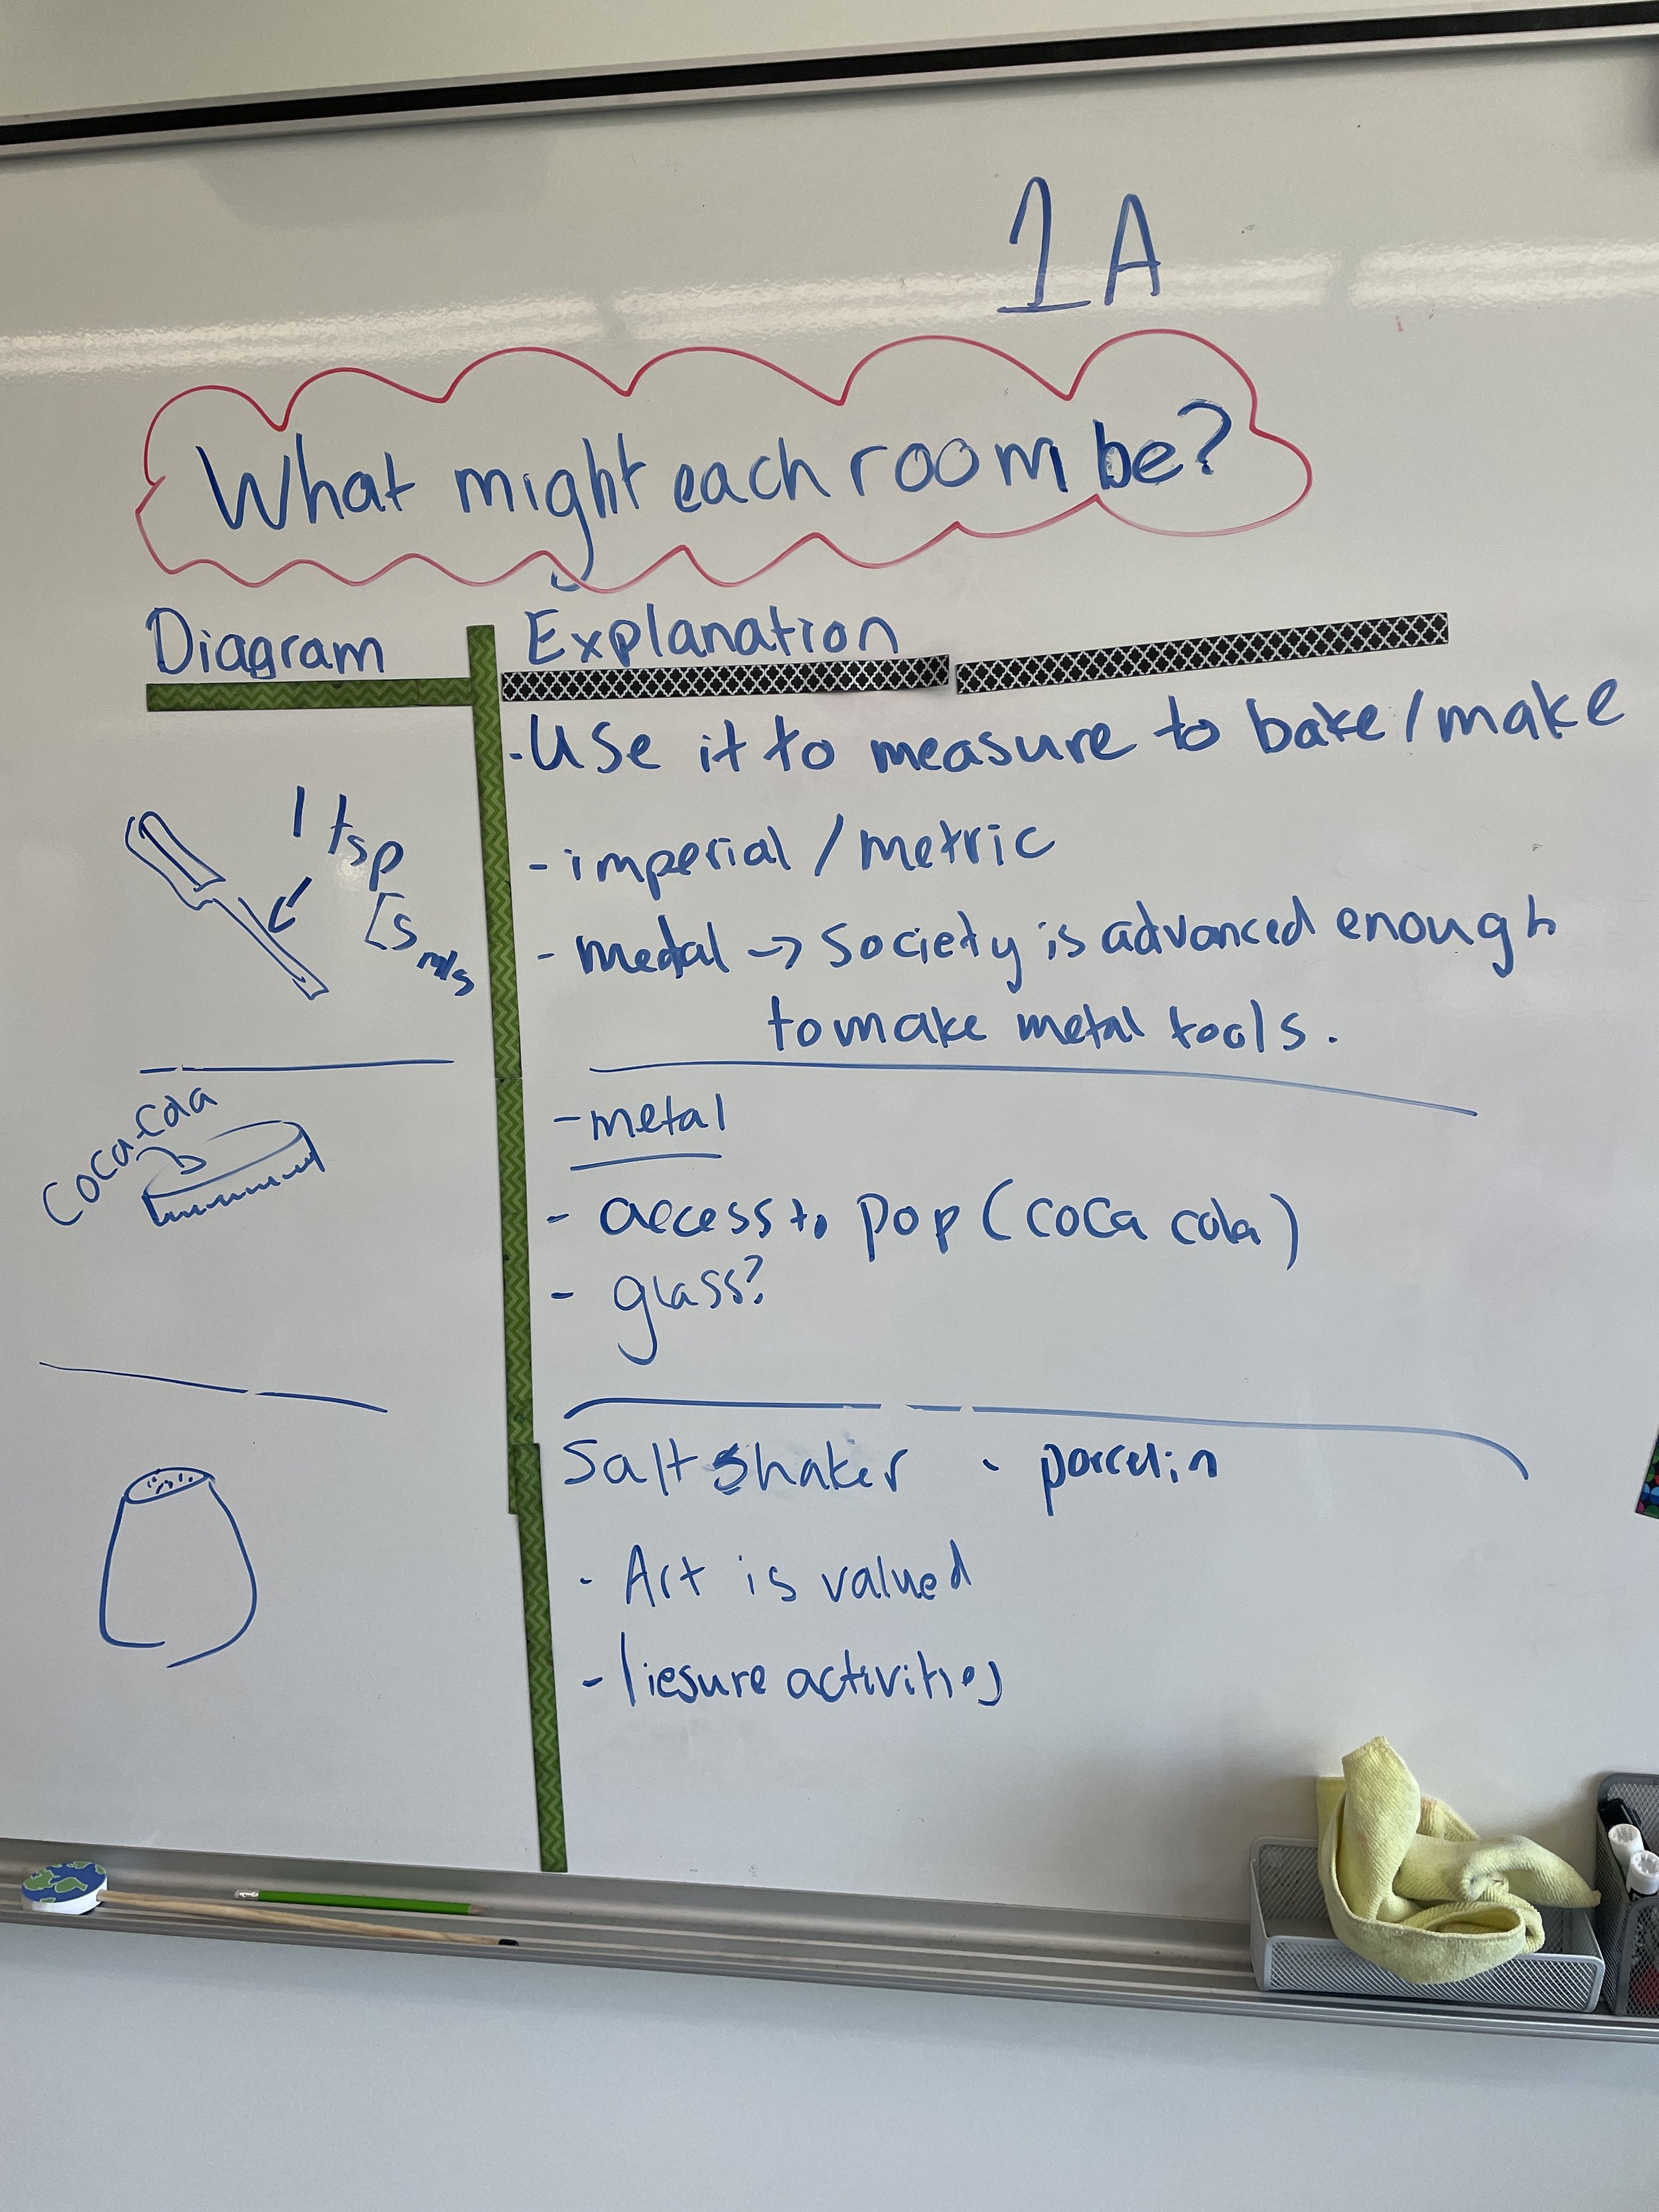 1A
What might each room be?
Diagram
Explanation
1 tsp
[5 mls
- Use it to measure to bake/make
- imperial / metric
- metal → Society is advanced enough
to make metal tools.
Coca-Cola
- metal
- access to pop (coca cola)
- glass?
Salt shaker - porcelin
- Art is valued
- liesure activities